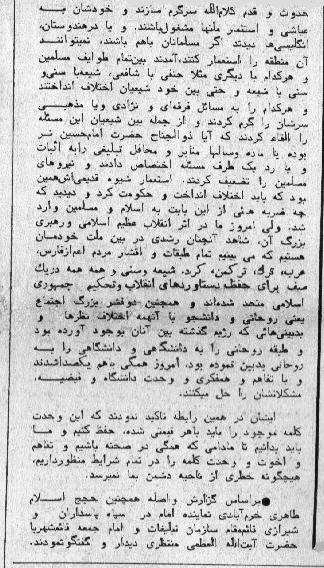 حدوث و قدم کلام‌الله سرگرم سازند و خودشان به
عیاشی و استثمار ملتها مشغول‌باشند. و یا درهندوستان،
انگلیسی‌ها دیدند اگر مسلمانان باهم باشند، نمیتوانند
آن منطقه را استعمار کنند، آمدند بین‌تمام طوایف مسلمین
و هرکدام با دیگری مثلا حنفی با شافعی، شیعه‌با سنی‌و
سنی با شیعه و حتی بین خود شیعیان اختلاف انداختند
و هرکدام را به مسائل فرقه‌ای و نژادی ویا مذهبی
سرشان را گرم کردند و از جمله بین شیعیان این مسئله
را القاء کردند که آیا ذوالجناح حضرت امام‌حسین نر
بوده یا ماده وسالها منابر و محافل تبلیغی رابه اثبات
و یا رد یک طرف مسئله اختصاص دادند و نیروهای
مسلمین را تضعیف کردند. استعمار شیوه قدیمی‌اش‌همین
بود که باید اختلاف انداخت و حکومت کرد و دیدید که
چه ضربه هائی از این بابت به اسلام و مسلمین وارد
شد. ولی امروز ما در اثر انقلاب عظیم اسلامی ورهبری
بزرگ آن، شاهد آنچنان رشدی در بین ملت خودمان
هستیم که می بینیم تمام طبقات و اقشار مردم اعم‌ازفارس،
عرب، ترک، ترکمن، کرد، شیعه وسنی و همه همه دریک
صف برای حفظ دستاوردهای انقلاب وتحکیم جمهوری
اسلامی متحد شده‌اند و همچنین دوقشر بزرگ اجتماع
یعنی روحانی و دانشجو با آنهمه اختلاف نظرها و
بدبینی‌هائی که رژیم گذشته بین آنان بوجود آورده بود
و طبقه روحانی را به دانشگاهی و دانشگاهی را به
روحانی بدبین نموده بود، امروز همگی باهم یکصداشدند
و با تفاهم و همفکری و وحدت دانشگاه و فیضیه،
مشکلاتشان را حل میکنند.
ایشان در همین رابطه تاکید نمودند که این وحدت
کلمه موجود را باید باهر قیمتی شده، حفظ کنیم و ما
باید بدانیم تا مادامی که همگی در صحنه باشیم و تفاهم
و اخوت و وحدت کلمه را در تمام شرایط منظورداریم،
هیچگونه خطری از ناحیه دشمن بما نمیرسد.
● براساس گزارش واصله همچنین حجج اسلام
طاهری خرم‌آبادی نماینده امام در سپاه پاسداران و
شیرازی قائم‌مقام سازمان تبلیغات و امام جمعه قائمشهربا
حضرت آیت‌الله العظمی منتظری دیدار و گفتگونمودند.